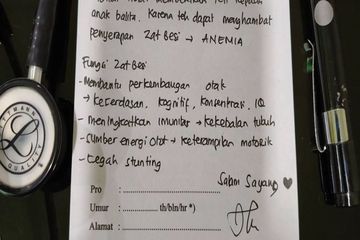 anak balita. Karena teh dapat menghambat
penyerapan Zat Besi → ANEMIA
Fungsi Zat Besi
- Membantu perkembangan otak
→ kecerdasan, kognitif, konsentrasi, IQ
- meningkatkan imunitas → kekebalan tubuh
- Sumber energi otot → keterampilan motorik
- Cegah stunting
Salam Sayang ♥
Pro : ................................
Umur : .................... th/bln/hr *)
Alamat : ................................
LITTMANN
QUALITY